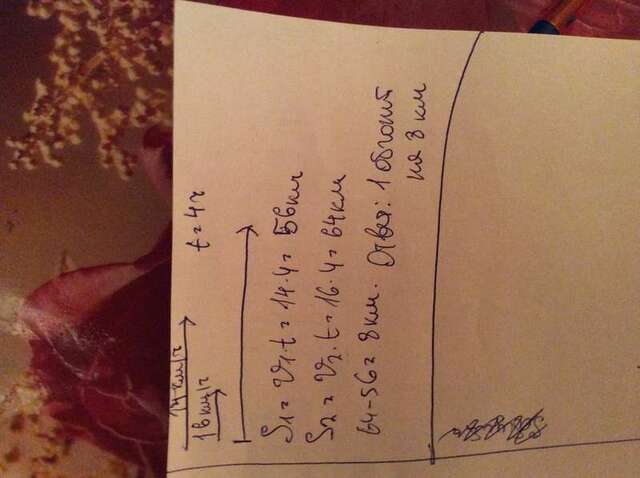 14 км/ч
16 км/ч
t = 4 ч
S₁ = V₁·t = 14·4 = 56 км
S₂ = V₂·t = 16·4 = 64 км
64-56 = 8 км. Ответ: 1 обгонит
на 8 км